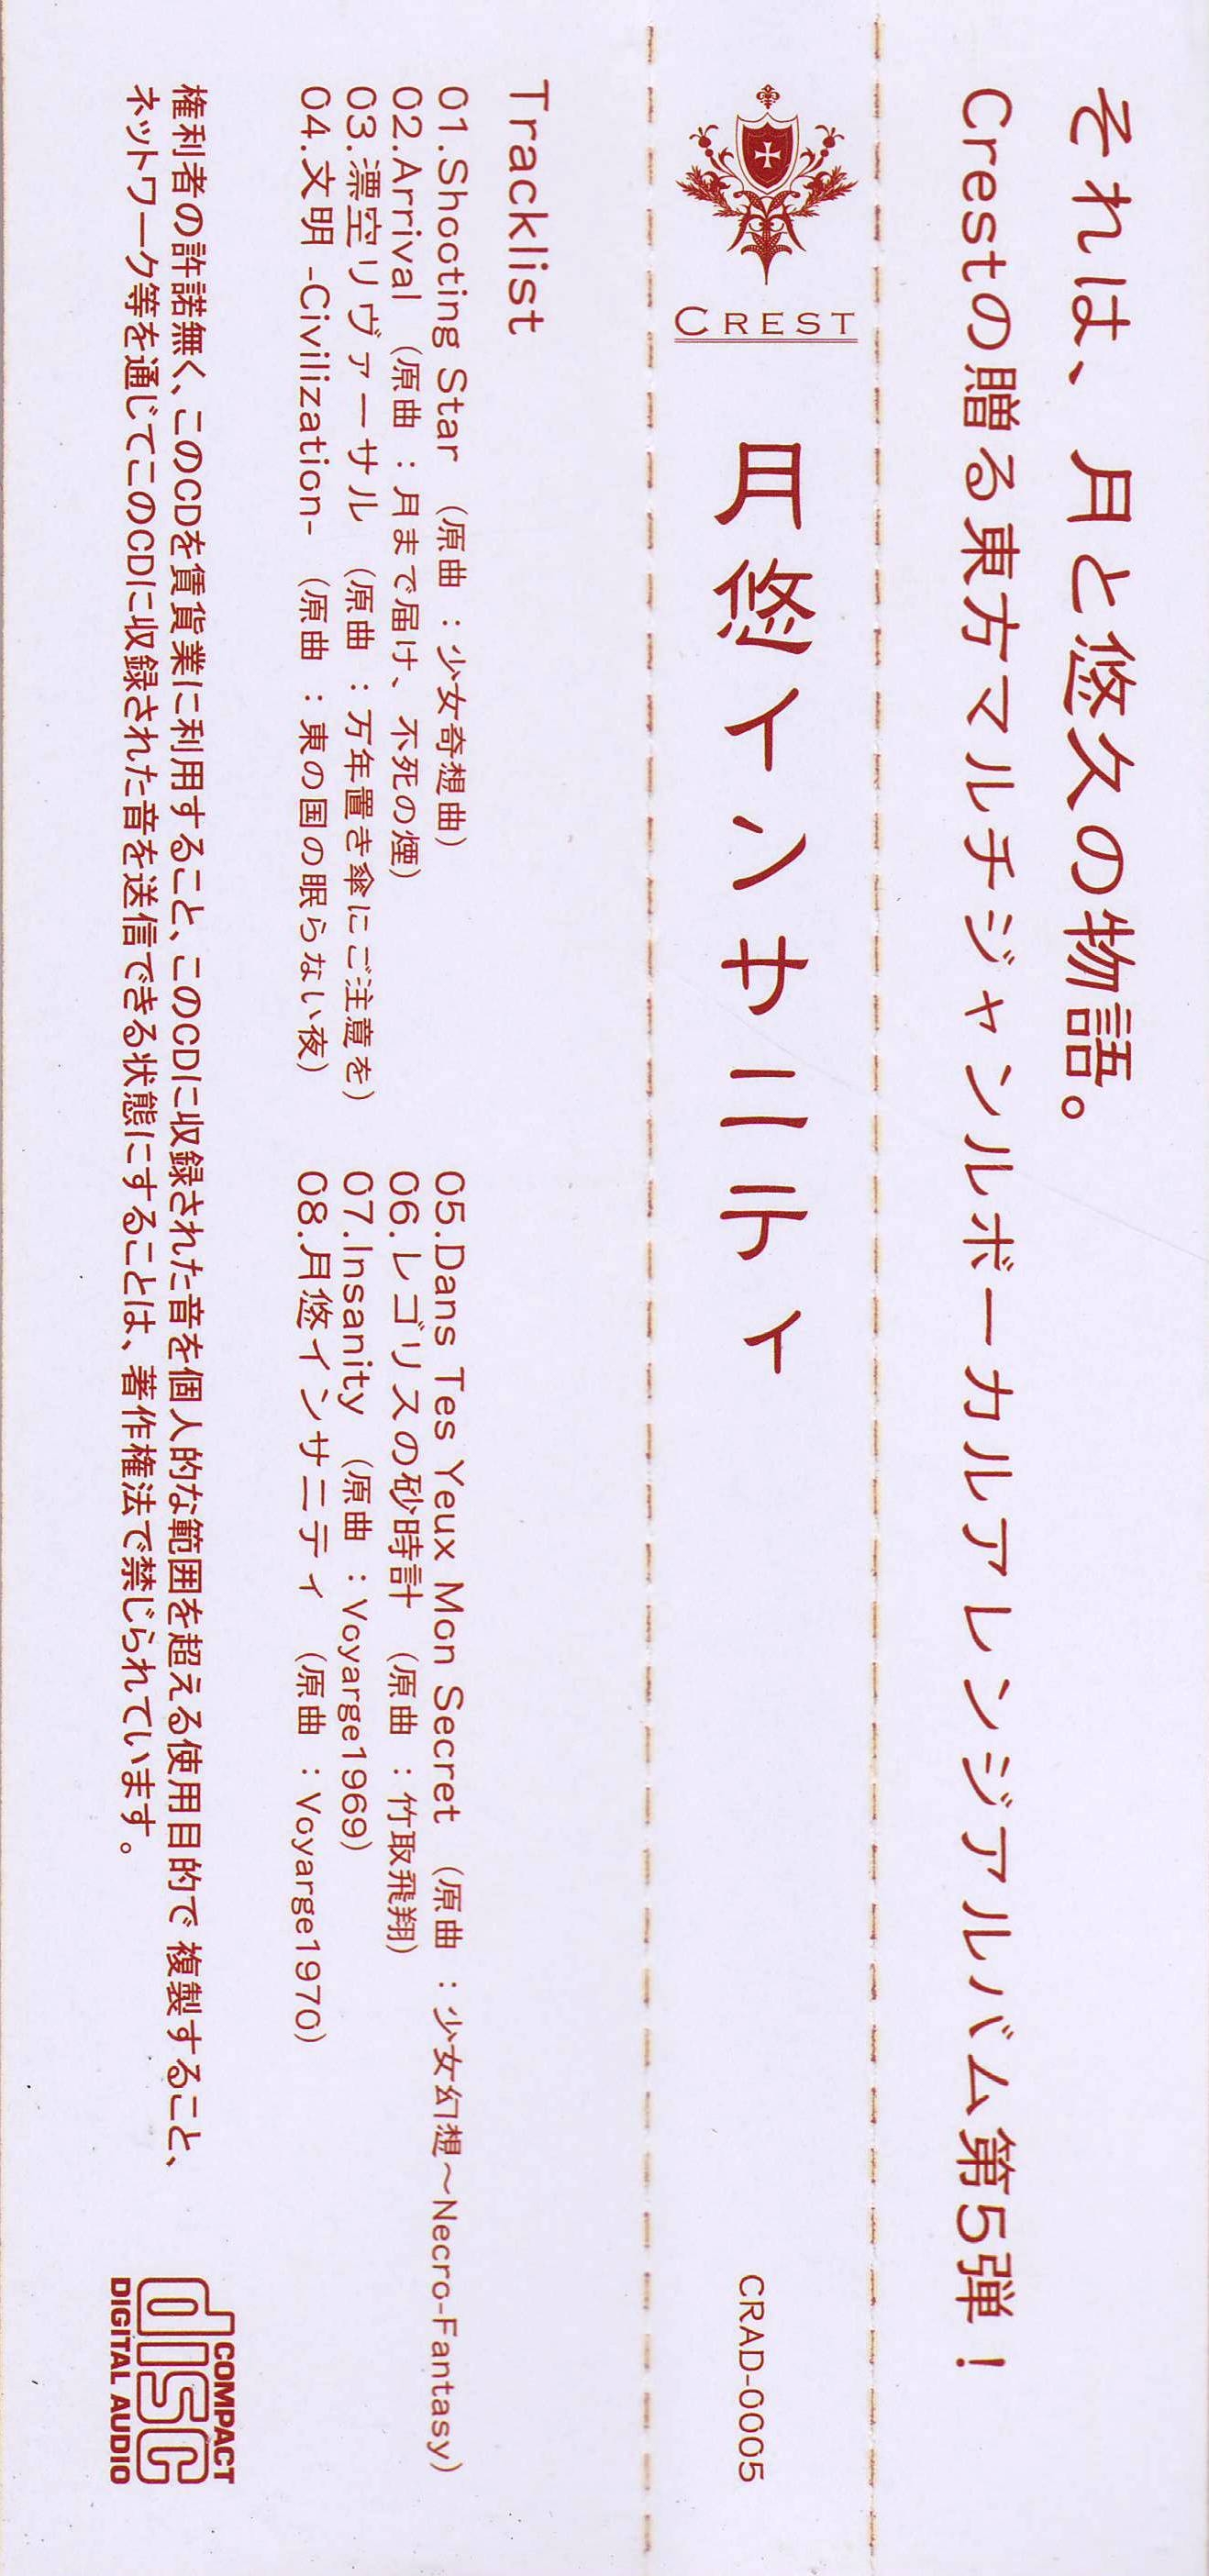 それは、月と悠久の物語。
Crestの贈る東方マルチジャンルボーカルアレンジアルバム第5弾！
CREST
月悠インサニティ
CRAD-0005
Tracklist
01.Shooting Star （原曲：少女綺想曲）
02.Arrival （原曲：月まで届け、不死の煙）
03.漂空リヴァーサル （原曲：万年置き傘にご注意を）
04.文明 -Civilization- （原曲：東の国の眠らない夜）
05.Dans Tes Yeux Mon Secret （原曲：少女幻想～Necro-Fantasy）
06.レゴリスの砂時計 （原曲：竹取飛翔）
07.Insanity （原曲：Voyarge1969）
08.月悠インサニティ （原曲：Voyarge1970）
権利者の許諾無く、このCDを賃貸業に利用すること、このCDに収録された音を個人的な範囲を超える使用目的で複製すること、
ネットワーク等を通じてこのCDに収録された音を送信できる状態にすることは、著作権法で禁じられています。
COMPACT
disc
DIGITAL AUDIO